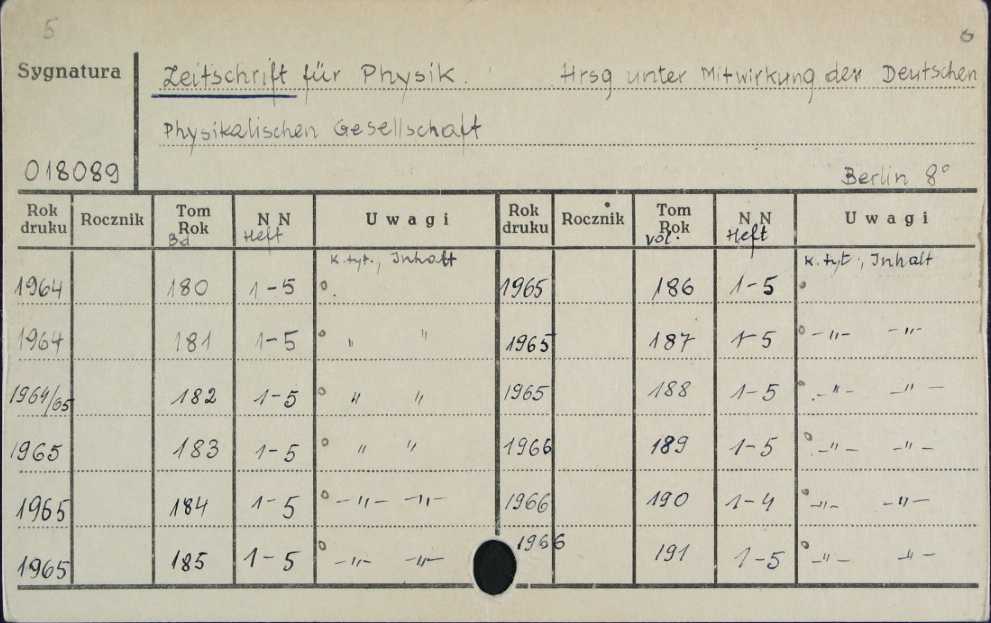 5 6
Sygnatura Zeitschrift für Physik. Hrsg unter Mitwirkung der Deutschen
Physikalischen Gesellschaft
018089 Berlin 8°
Rok druku Rocznik Tom Rok Bd N N Heft Uwagi Rok druku Rocznik Tom Rok vol. N N Heft Uwagi
k. tyt., Inhalt k. tyt., Inhalt
1964 180 1-5 ° 1965 186 1-5 °
1964 181 1-5 ° " " 1965 187 1-5 ° -"- -"-
1964/65 182 1-5 ° " " 1965 188 1-5 ° -"- -"-
1965 183 1-5 ° " " 1966 189 1-5 ° -"- -"-
1965 184 1-5 ° -"- -"- 1966 190 1-4 ° -"- -"-
1965 185 1-5 ° -"- -"- 1966 191 1-5 ° -"- -"-